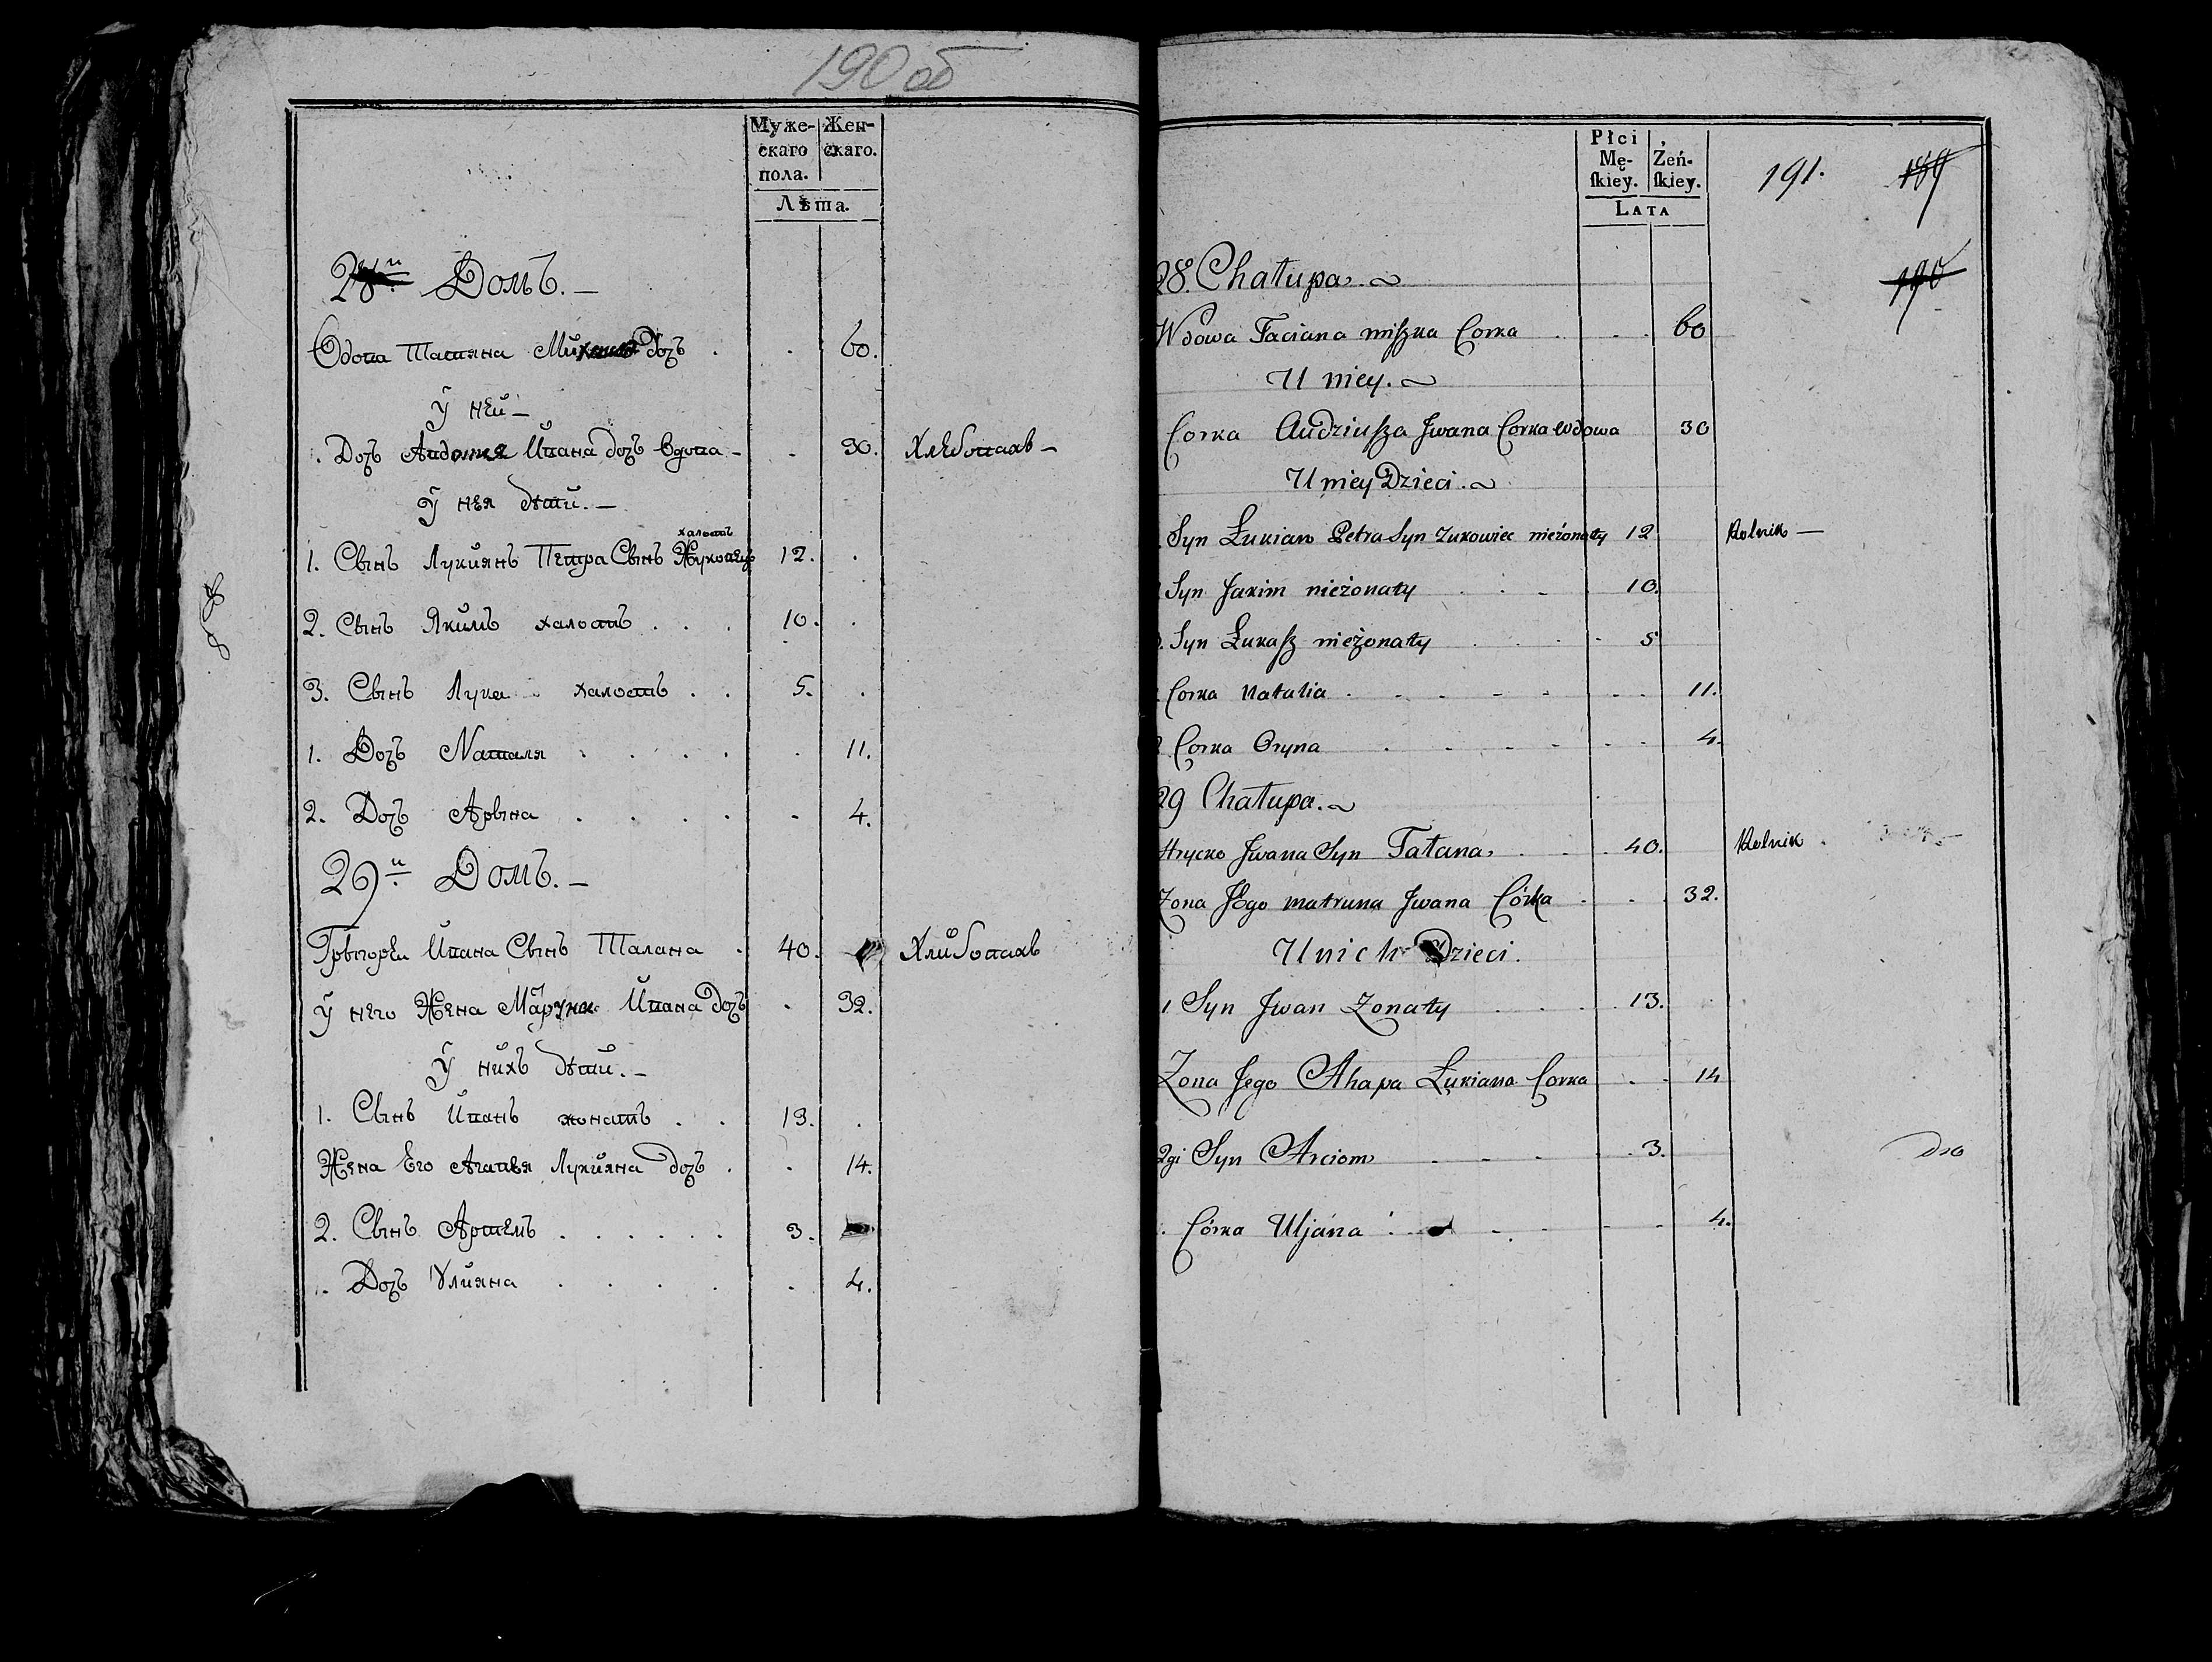 190 об
Муже-
скаго
пола.
Жен-
скаго.
Лѣта.
28й Домъ. —
Вдова Татяна дочъ . . 60.
У ней —
. Дочъ Авдотия Ивана дочъ Вдова — . 30. Хлебопахъ —
У нея дѣти. —
халостъ
1. Сынъ Лукиянъ Петра Сынъ Жуковецъ 12. .
2. Сынъ Якимъ халостъ . . . 10. .
3. Сынъ Лука . халостъ . . 5. .
1. Дочъ Наталя . . . . . 11.
2. Дочъ Арына . . . . - 4.
29й Домъ. —
Грыгорей Ивана Сынъ Талана . 40. Хлибопахъ
У него Жена Ивана дочъ . 32.
У нихъ дѣти. —
1. Сынъ Иванъ жонатъ . . 13. .
Жена Его Агапия Лукияна дочъ . . 14.
2. Сынъ Артемъ . . . . . . 3.
.. Дочъ Улияна . . . . . 4.
Płci
Mę-
ſkiey.
Żeń-
ſkiey.
Lata
191.
189
190
28. Chałupa. ~
Wdowa Taciana miſzka Corka . . . 60
U niey. ~
Corka Audziuſza Jwana Corka wdowa 30
U niey Dzieci. ~
Syn Łukian Petra Syn Zukowiec nieżonaty 12 Rolnik —
Syn Jakim nieżonaty . . - 10.
. Syn Łukaſz nieżonaty . . . - 5
Corka Natalia . . - - - . . 11.
Corka Oryna . . - - - . . 4.
29 Chałupa. ~
Hrycko Jwana Syn Tałana. . . . 40. Rolnik .
Zona Jego matruna Jwana Córka . . . 32.
U nich Dzieci.
1 Syn Jwan Zonaty . . . . 13.
Zona Jego Ahapa Łukiana Corka . . 14
2gi Syn Arciom - - - . . 3.
. Córka Uljana . . - . - - - 4.